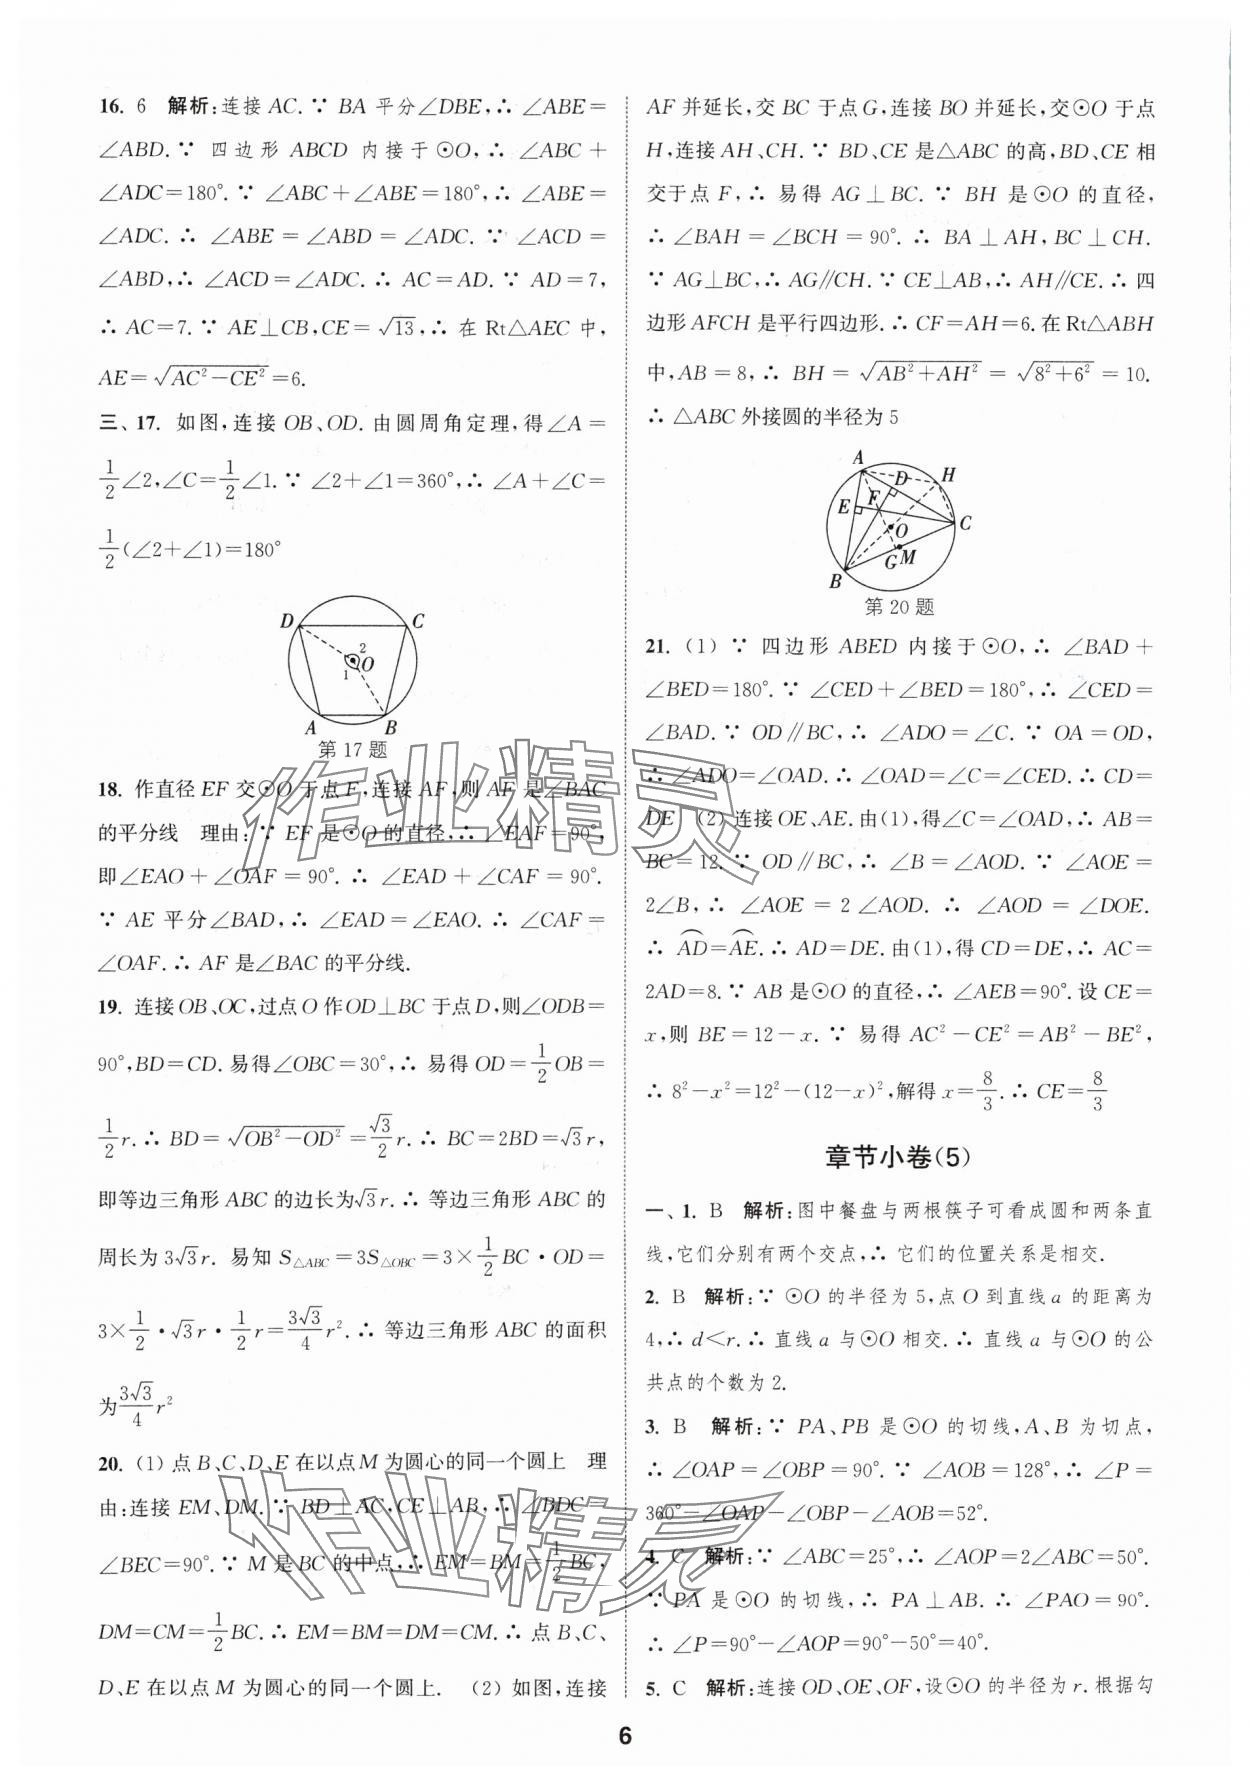 16. 6 解析:连接 AC.∵ BA 平分∠DBE,∴ ∠ABE=
∠ABD.∵ 四边形 ABCD 内接于⊙O,∴ ∠ABC+
∠ADC=180°.∵ ∠ABC+∠ABE=180°,∴ ∠ABE=
∠ADC.∴ ∠ABE=∠ABD=∠ADC.∵ ∠ACD=
∠ABD,∴ ∠ACD=∠ADC.∴ AC=AD.∵ AD=7,
∴ AC=7.∵ AE⊥CB,CE=√13,∴ 在 Rt△AEC 中,
AE=√(AC²-CE²)=6.
三、17. 如图,连接OB、OD.由圆周角定理,得∠A=
1/2∠2,∠C=1/2∠1.∵ ∠2+∠1=360°,∴ ∠A+∠C=
1/2(∠2+∠1)=180°
D C 2 O 1 A B
第17题
18. 作直径EF交⊙O于点F,连接AF,则AF是∠BAC
的平分线 理由:∵ EF是⊙O的直径,∴ ∠EAF=90°,
即∠EAO+∠OAF=90°.∴ ∠EAD+∠CAF=90°.
∵ AE 平分∠BAD,∴ ∠EAD=∠EAO.∴ ∠CAF=
∠OAF.∴ AF是∠BAC的平分线.
19. 连接OB、OC,过点O作OD⊥BC于点D,则∠ODB=
90°,BD=CD.易得∠OBC=30°,∴ 易得OD=1/2OB=
1/2r.∴ BD=√(OB²-OD²)=√3/2r.∴ BC=2BD=√3r,
即等边三角形ABC的边长为√3r.∴ 等边三角形ABC的
周长为3√3r. 易知S△ABC=3S△OBC=3×1/2BC·OD=
3×1/2·√3r·1/2r=3√3/4r².∴ 等边三角形ABC的面积
为3√3/4r²
20. (1) 点B、C、D、E在以点M为圆心的同一个圆上 理
由:连接EM、DM.∵ BD⊥AC,CE⊥AB,∴ ∠BDC=
∠BEC=90°.∵ M是BC的中点,∴ EM=BM=1/2BC,
DM=CM=1/2BC.∴ EM=BM=DM=CM.∴ 点B、C、
D、E在以点M为圆心的同一个圆上. (2) 如图,连接
AF并延长,交BC于点G,连接BO并延长,交⊙O于点
H,连接AH、CH.∵ BD、CE是△ABC的高,BD、CE相
交于点F,∴ 易得AG⊥BC.∵ BH是⊙O的直径,
∴ ∠BAH=∠BCH=90°.∴ BA⊥AH,BC⊥CH.
∵ AG⊥BC,∴ AG∥CH.∵ CE⊥AB,∴ AH∥CE.∴ 四
边形AFCH是平行四边形.∴ CF=AH=6.在Rt△ABH
中,AB=8,∴ BH=√(AB²+AH²)=√(8²+6²)=10.
∴ △ABC外接圆的半径为5
A H D E F C O G M B
第20题
21. (1) ∵ 四边形ABED内接于⊙O,∴ ∠BAD+
∠BED=180°.∵ ∠CED+∠BED=180°,∴ ∠CED=
∠BAD.∵ OD∥BC,∴ ∠ADO=∠C.∵ OA=OD,
∴ ∠ADO=∠OAD.∴ ∠OAD=∠C=∠CED.∴ CD=
DE (2) 连接OE、AE.由(1),得∠C=∠OAD,∴ AB=
BC=12.∵ OD∥BC,∴ ∠B=∠AOD.∵ ∠AOE=
2∠B,∴ ∠AOE=2∠AOD.∴ ∠AOD=∠DOE.
∴ ⌒AD=⌒AE.∴ AD=DE.由(1),得CD=DE,∴ AC=
2AD=8.∵ AB是⊙O的直径,∴ ∠AEB=90°.设CE=
x,则BE=12-x.∵ 易得AC²-CE²=AB²-BE²,
∴ 8²-x²=12²-(12-x)²,解得x=8/3.∴ CE=8/3
章节小卷(5)
一、1. B 解析:图中餐盘与两根筷子可看成圆和两条直
线,它们分别有两个交点,∴ 它们的位置关系是相交.
2. B 解析:∵ ⊙O的半径为5,点O到直线a的距离为
4,∴ d<r.∴ 直线a与⊙O相交.∴ 直线a与⊙O的公
共点的个数为2.
3. B 解析:∵ PA、PB是⊙O的切线,A、B为切点,
∴ ∠OAP=∠OBP=90°.∵ ∠AOB=128°,∴ ∠P=
360°-∠OAP-∠OBP-∠AOB=52°.
4. C 解析:∵ ∠ABC=25°,∴ ∠AOP=2∠ABC=50°.
∵ PA是⊙O的切线,∴ PA⊥AB.∴ ∠PAO=90°.
∴ ∠P=90°-∠AOP=90°-50°=40°.
5. C 解析:连接OD、OE、OF,设⊙O的半径为r.根据勾
6
作业精灵
作业精灵